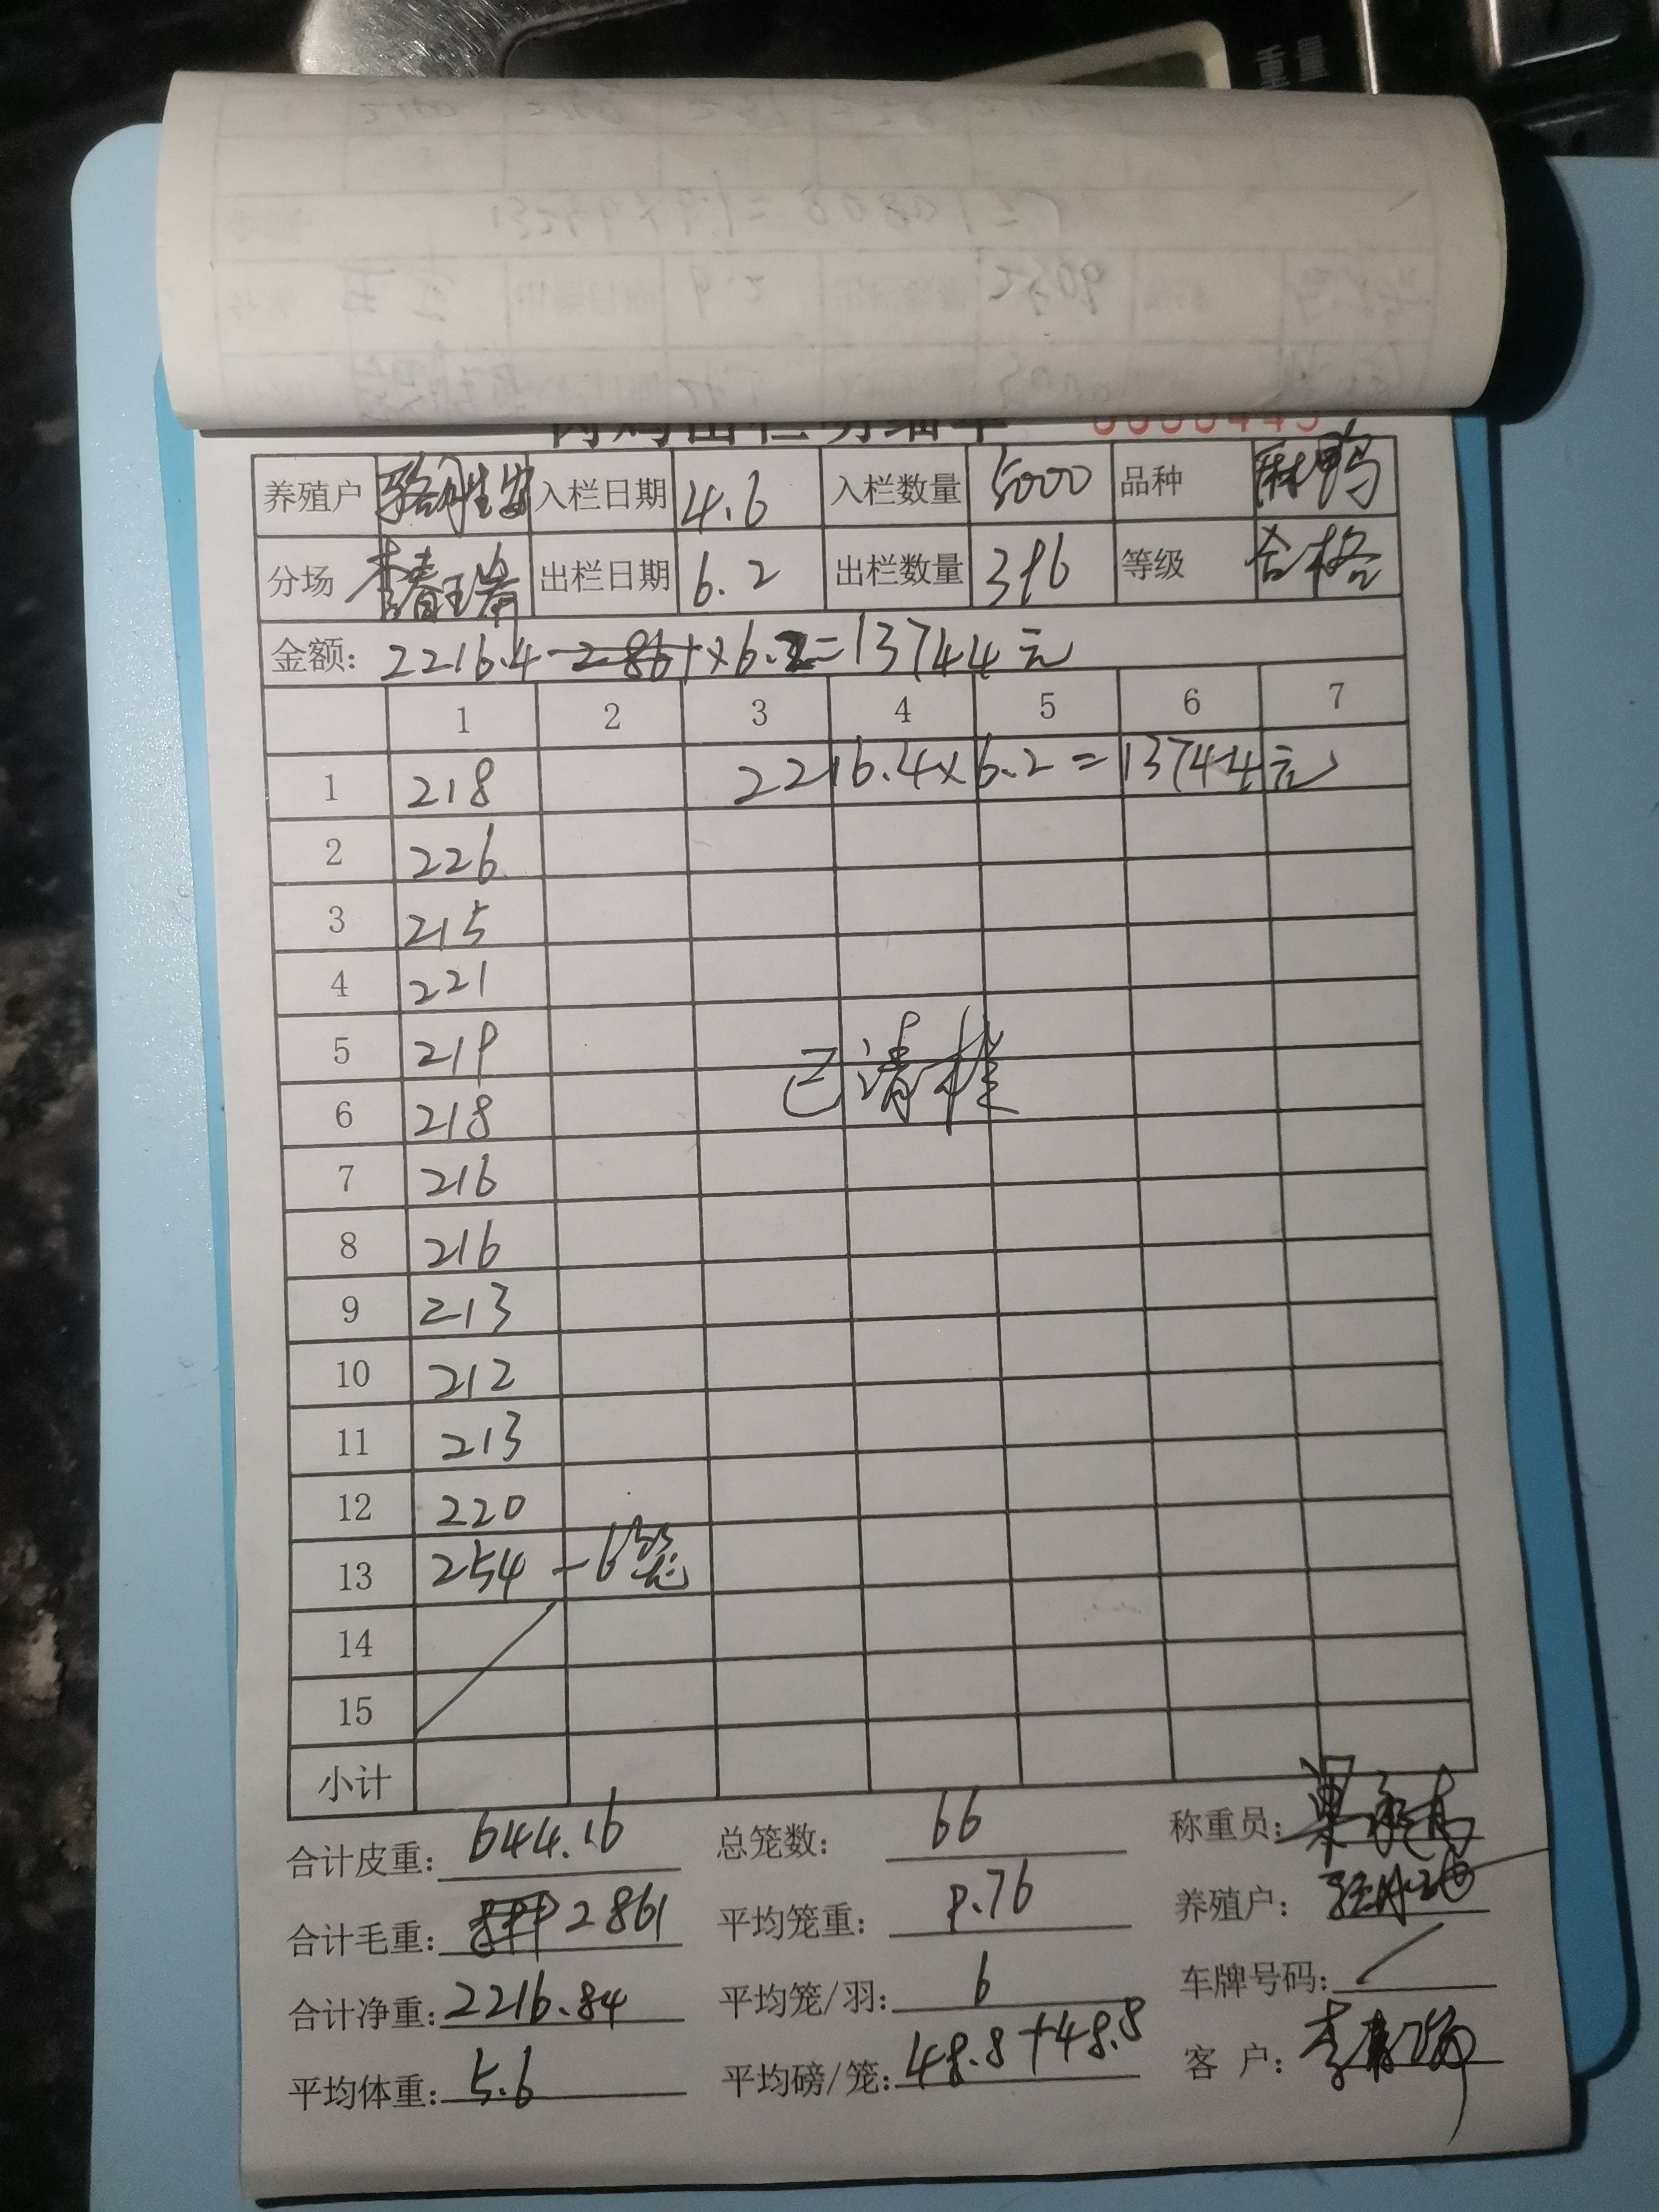 养殖户 入栏日期 4.6 入栏数量 5000 品种 麻鸭
分场 李春瑞 出栏日期 6.2 出栏数量 396 等级 合格
金额: 2216.4 ×6.2=13744元
1 2 3 4 5 6 7
1 218 2216.4×6.2=13744元
2 226
3 215
4 221
5 219
6 218
7 216
8 216
9 213
10 212
11 213
12 220
13 254 - 6笼
14
15
已请
小计
合计皮重: 644.16 总笼数: 66 称重员:
合计毛重: 2861 平均笼重: 9.76 养殖户:
合计净重: 2216.84 平均笼/羽: 6 车牌号码:
平均体重: 5.6 平均磅/笼: 48.8+48.8 客户: 李春瑞